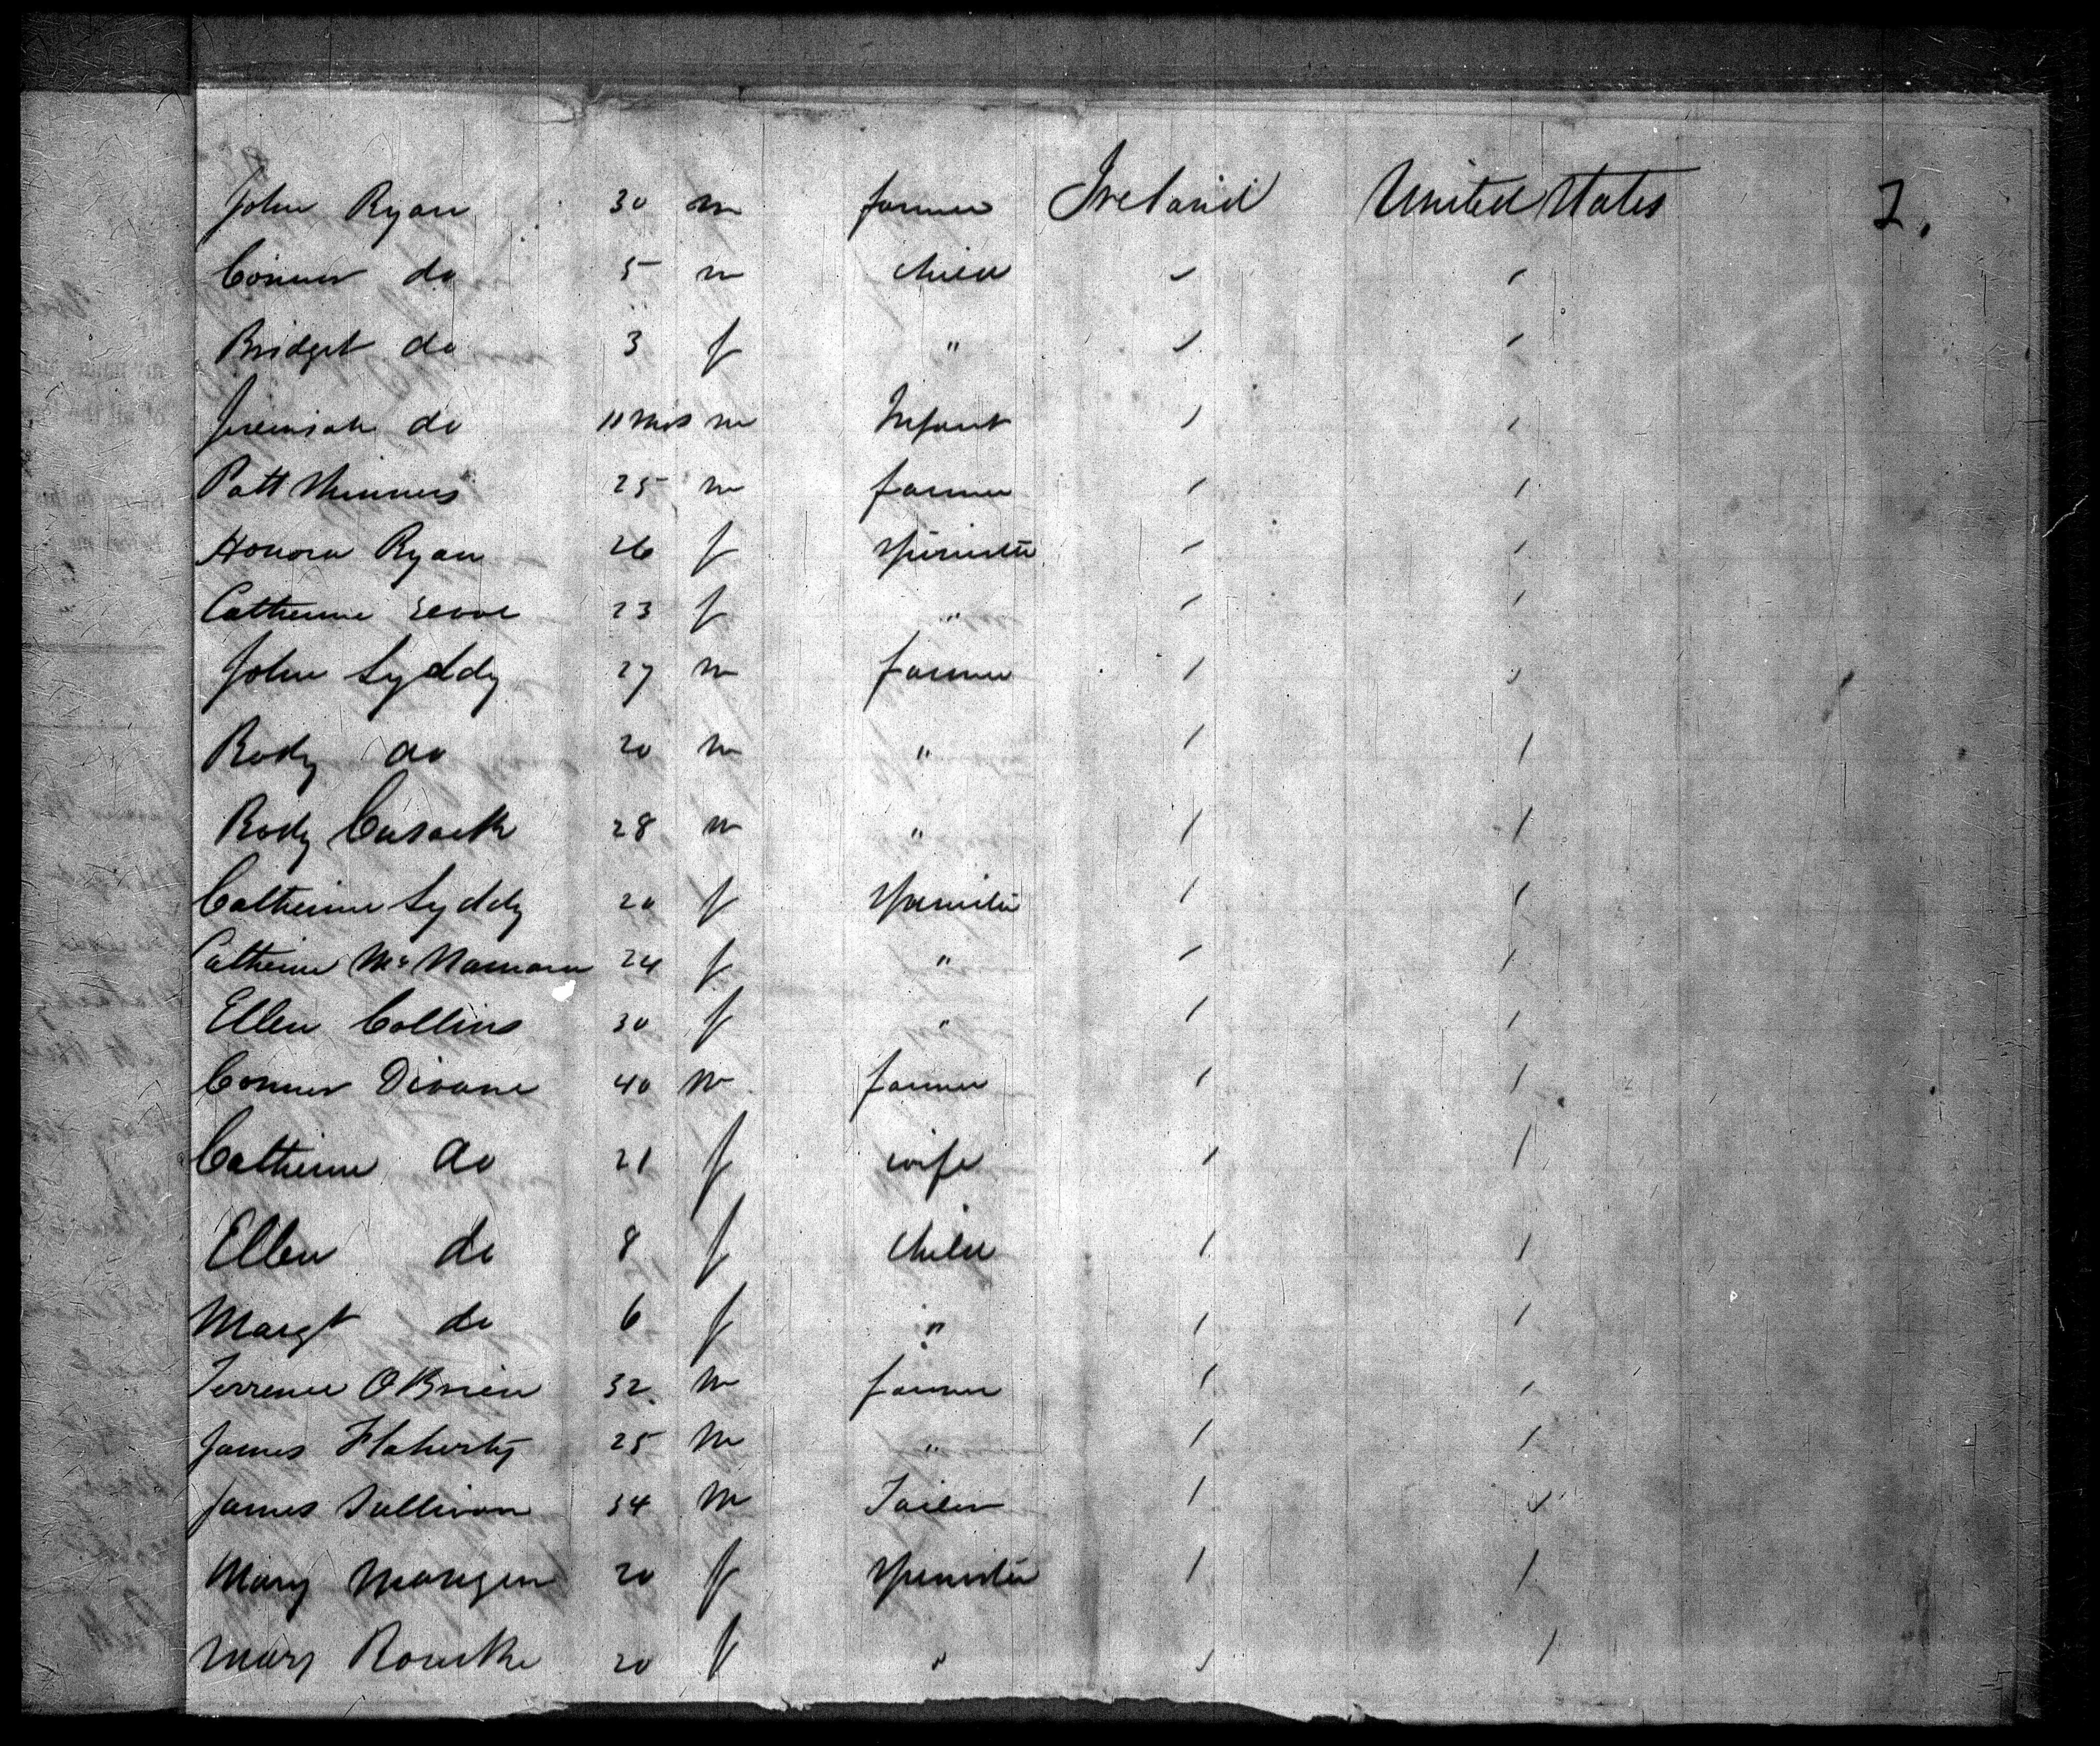 John Ryan 30 m farmer Ireland United States 2.
Conner do 5 m child
Bridget do 3 f "
Jeremiah do 11 mos m Infant
Patt 25 m farmer
Honora Ryan 26 f spinster
Catherine 23 f "
John Lyddy 27 m farmer
Rody do 20 m "
Rody Cusack 28 m "
Catherine Lyddy 20 f spinster
Catherine McNamara 24 f "
Ellen Collins 30 f "
Conner Divane 40 m farmer
Catherine do 21 f wife
Ellen do 8 f child
Margt do 6 f "
Terrence OBrien 32 m farmer
James Flaherty 25 m "
James Sullivan 34 m Tailor
Mary 20 f spinster
Mary Rourke 20 f "